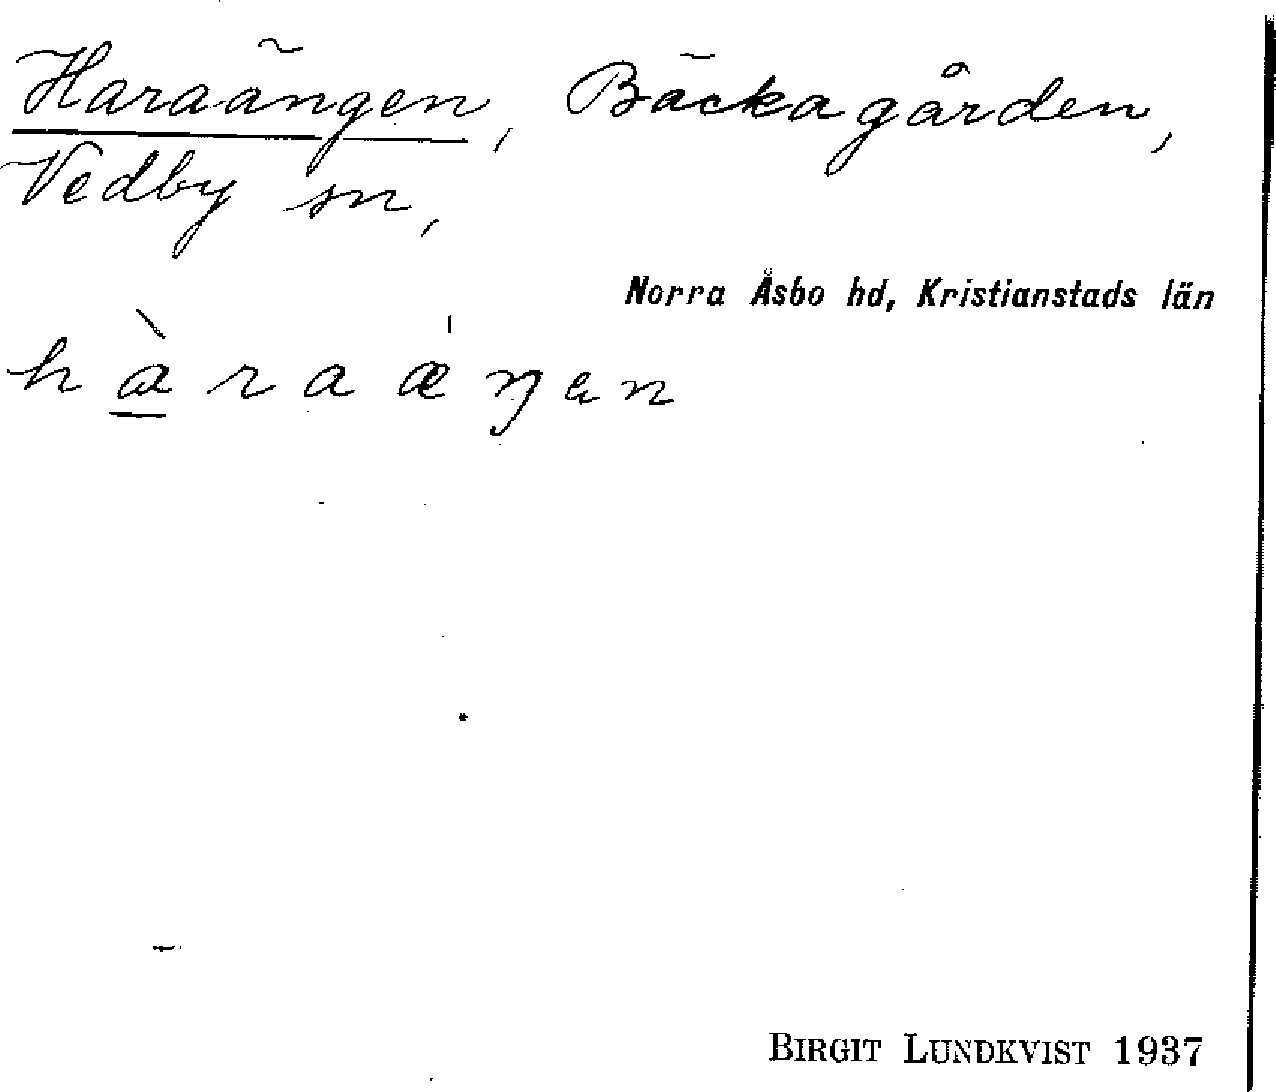 Haraängen, Bäckagården,
Vedby sn,
Norra Åsbo hd, Kristianstads län
hàraæ̍ŋen
BIRGIT LUNDKVIST 1937